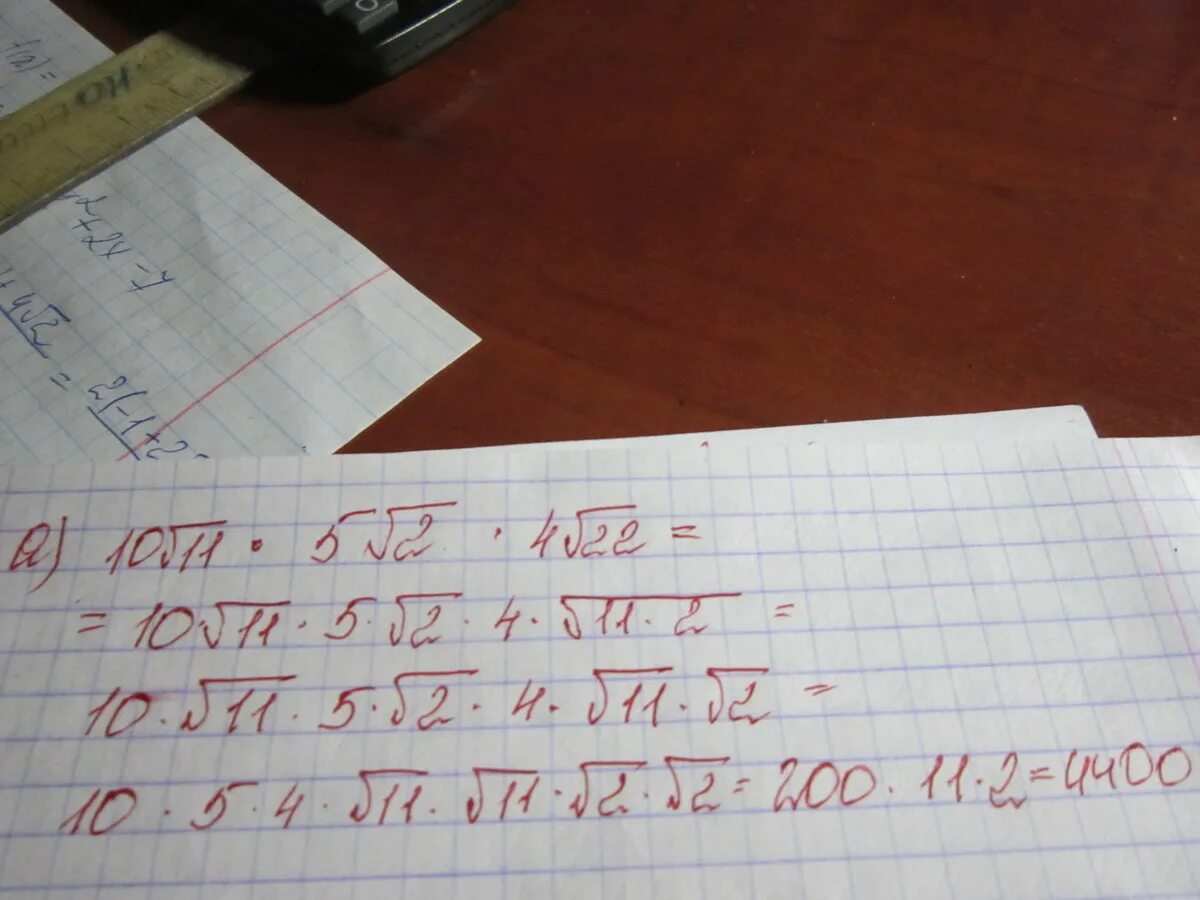 +2x=7
+4√2
= 2(-1+2
а) 10√11 · 5√2 · 4√22 =
= 10·√11 · 5·√2 · 4 · √11·2 =
10 · √11 · 5·√2 · 4 · √11 · √2 =
10 · 5 · 4 · √11 · √11 · √2 · √2 = 200 · 11 · 2 = 4400